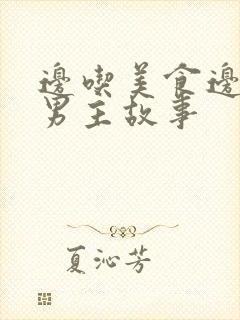 邊喫美食邊
男主故事
夏沁芳